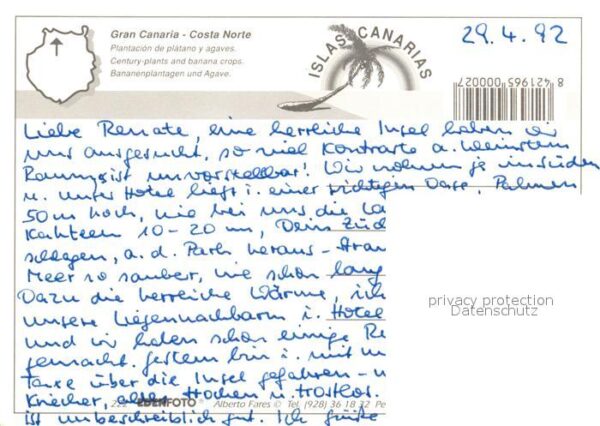 Gran Canaria - Costa Norte
Plantación de plátano y agaves.
Century-plants and banana crops.
Bananenplantagen und Agave.
ISLAS CANARIAS
29.4.92
8 421965 000027
Liebe Renate, eine herrliche Insel haben wir
uns ausgesucht, so viel Kontraste a. kleinstem
Raum, ist unvorstellbar! Wir wohnen ja im Süden
u. unser Hotel liegt i. einer richtigen Oase, Palmen
50 m hoch, wie bei uns die
Kakteen 10 - 20 m, Dein
schlagen, a. d. Park heraus -
Meer so sauber, wie schon lang
Dazu die herrliche Wärme, ich
unsere Liegennachbarn i. Hotel
und wir haben schon einige
gemacht. Gestern bin i. mit
Taxe über die Insel gefahren -
trocken u. trostlos.
ist unbeschreiblich gut. Ich grüße
EDENFOTO® Alberto Fares © Tel. (928) 36 18 32
privacy protection
Datenschutz